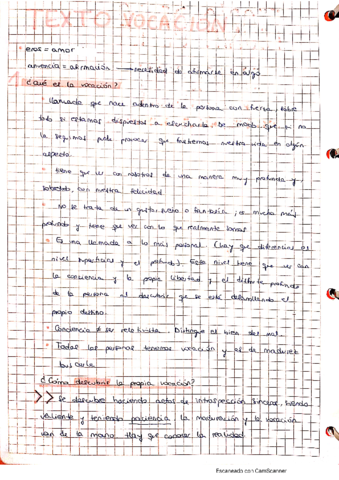 TEXTO VOCACIÓN
eros = amor
anuencia = afirmación → necesidad de afirmarse en algo
¿Qué es la vocación?
llamada que nace adentro de la persona con fuerza, sobre
todo si estamos dispuestos a escucharla. De modo que si no
la seguimos puede provocar que frustremos nuestra vida en algún
aspecto.
tiene que ver con nosotros de una manera muy profunda y,
sobretodo, con nuestra felicidad
No se trata de un gusto, sueño o fantasía, es mucho más
profundo y tiene que ver con lo que realmente somos
Es una llamada a lo más personal (hay que diferenciar el
nivel superficial y el profundo). Este nivel tiene que ver con
la conciencia y la propia libertad y el disfrute profundo
de la persona al descubrir que se está desarrollando el
propio destino.
Conciencia ≠ ser relativista. Distingue el bien del mal.
Todas las personas tenemos vocación y es de madurez
buscarla
¿Cómo descubrir la propia vocación?
>> Se descubre haciendo actos de introspección sincera, siendo
valiente y teniendo paciencia. La maduración y la vocación
van de la mano. Hay que conocer la realidad
Escaneado con CamScanner